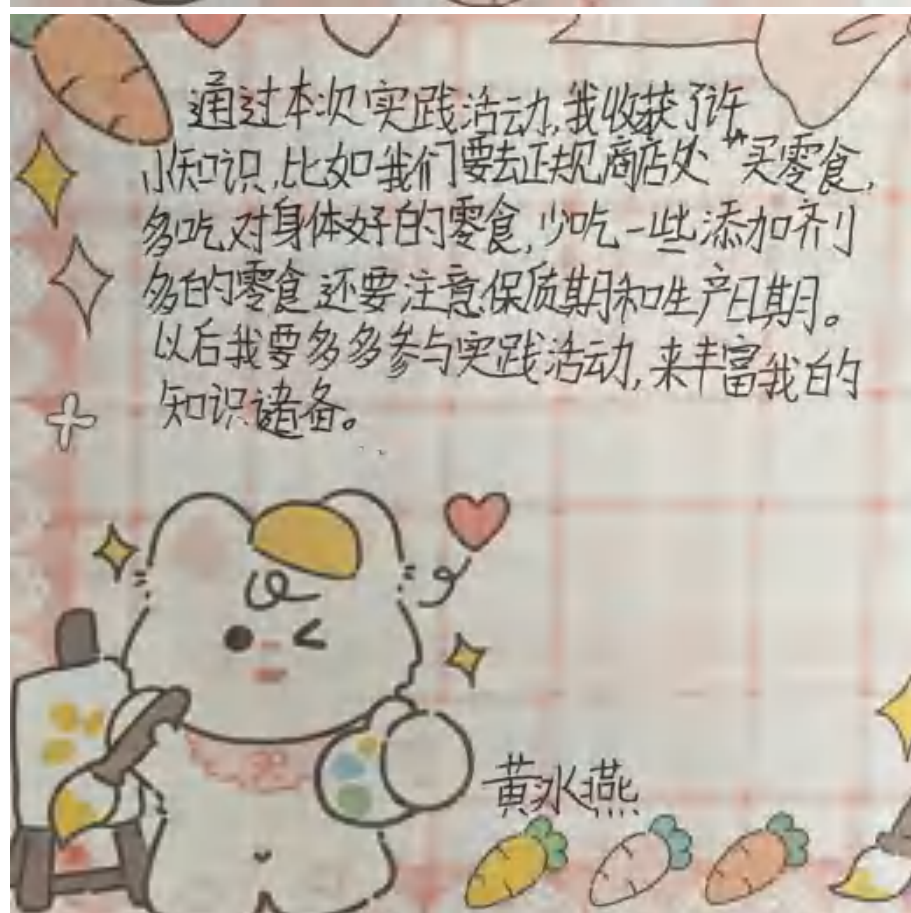 通过本次实践活动,我收获了许
小知识,比如我们要去正规商店处买零食,
多吃对身体好的零食,少吃一些添加剂
多的零食还要注意保质期和生产日期。
以后我要多多参与实践活动,来丰富我的
知识诸备。
黄冰燕